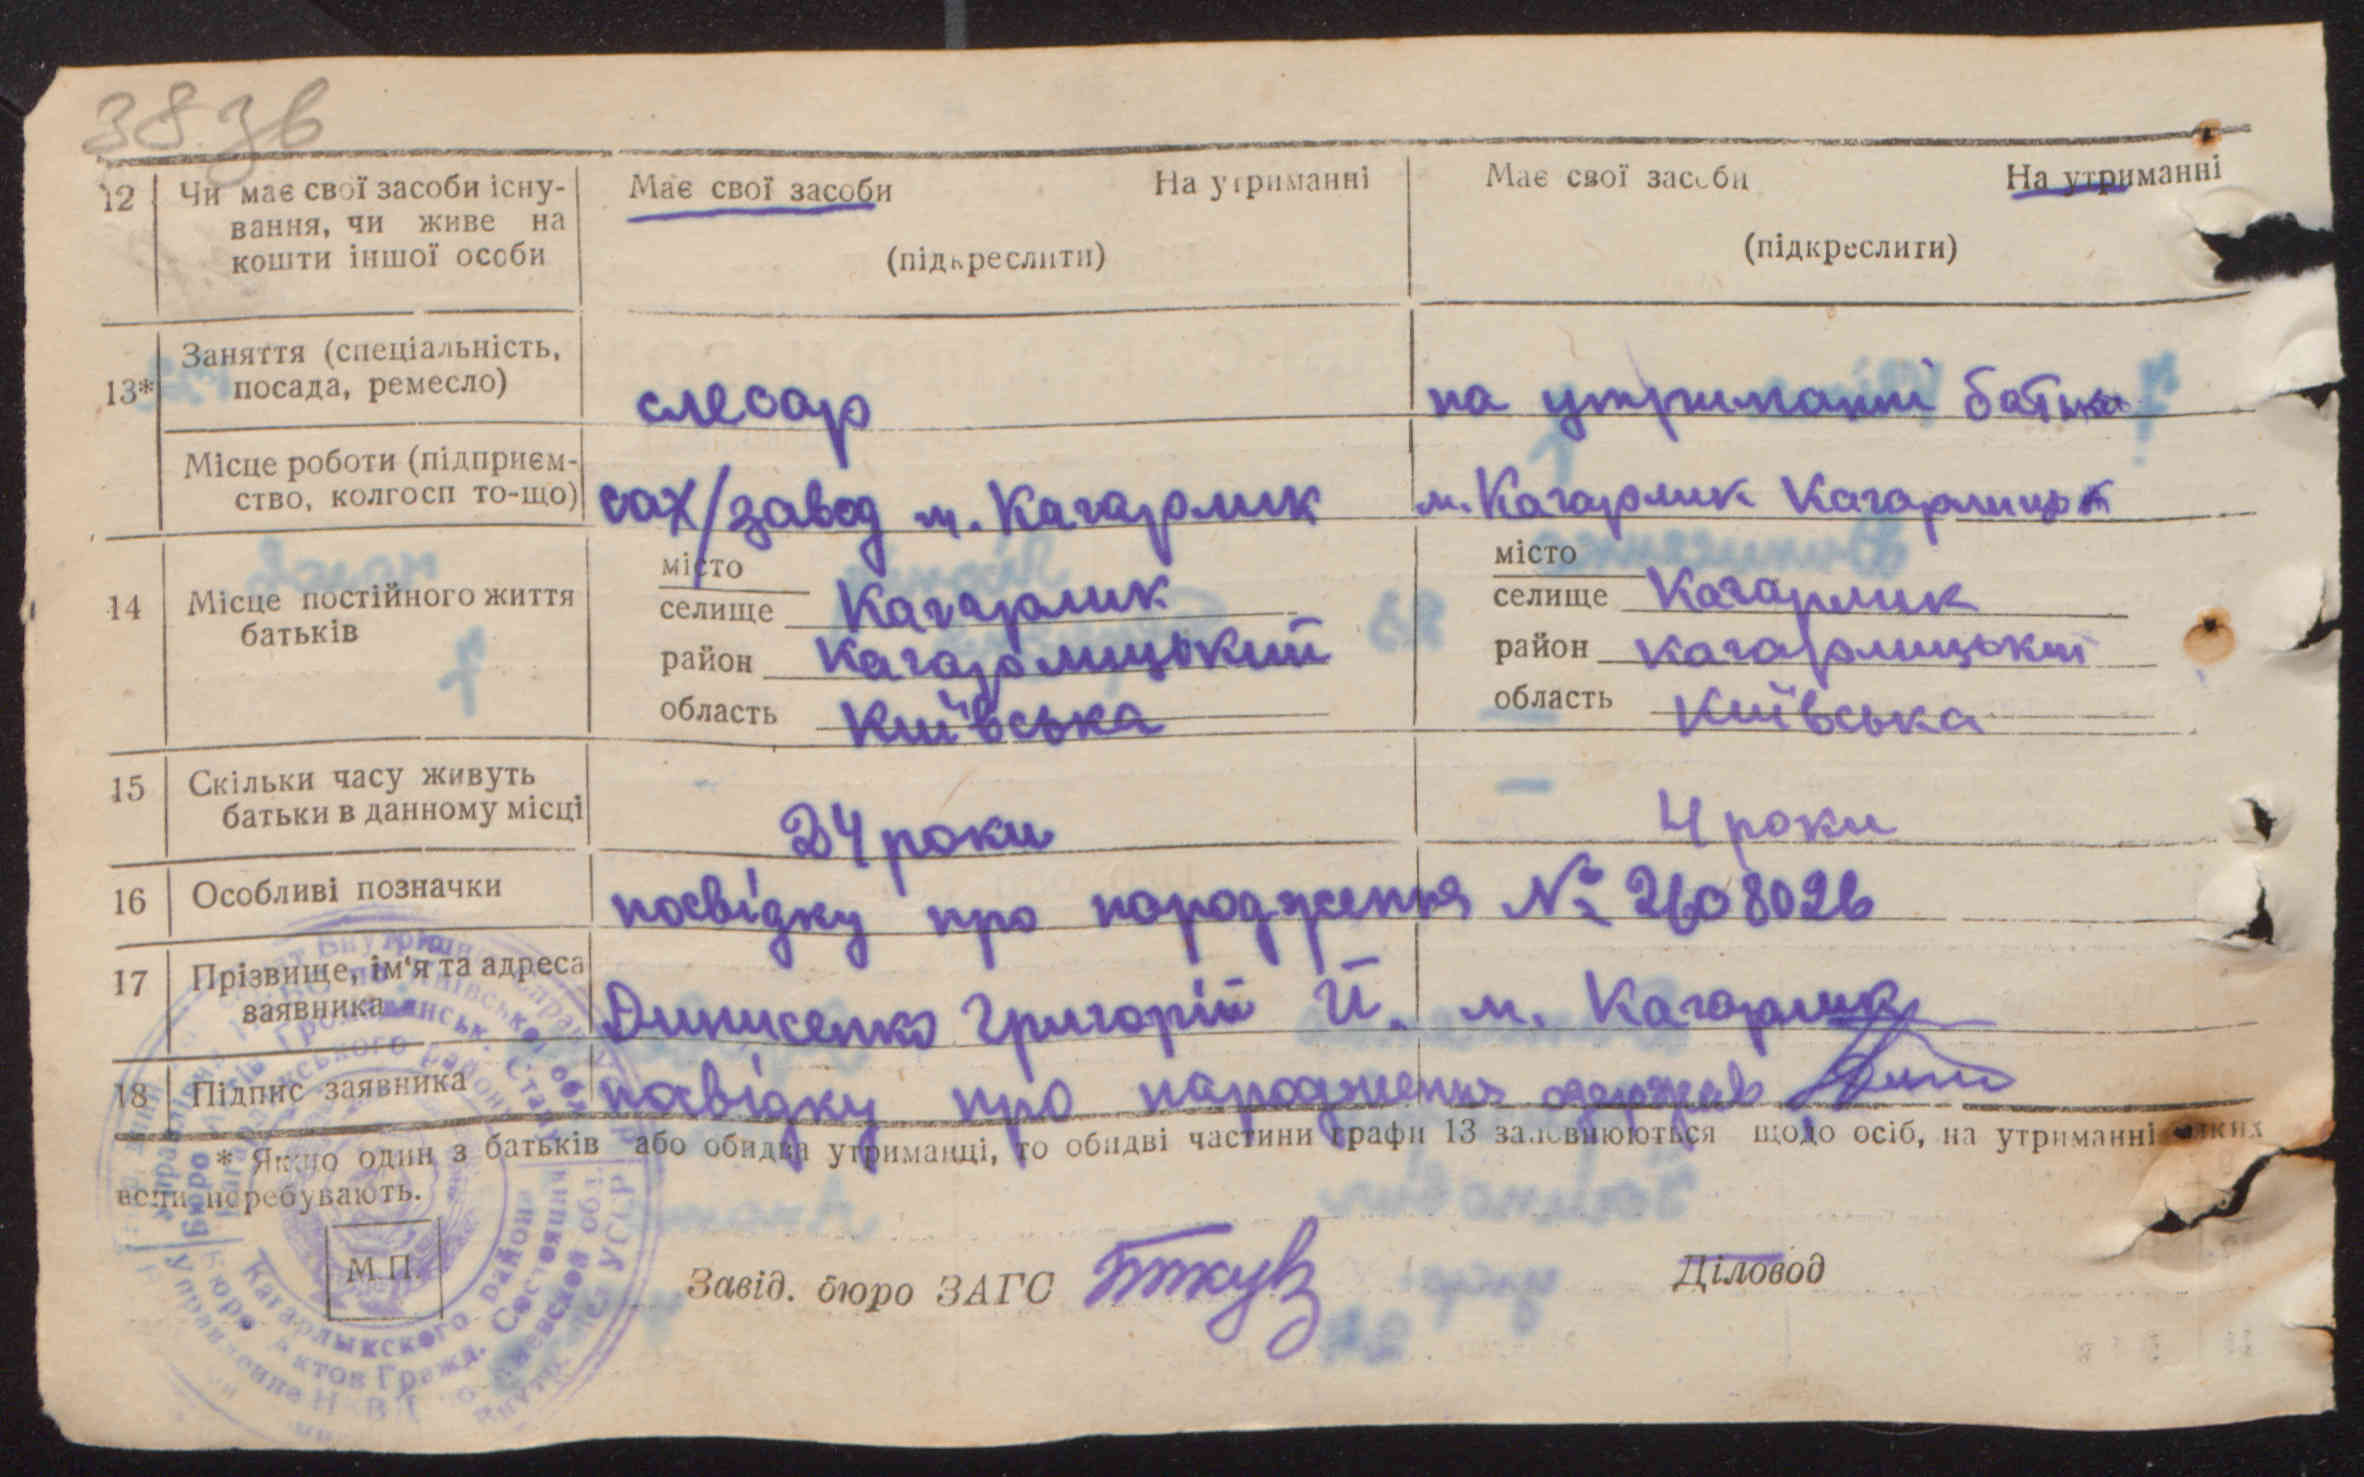 38 зв
12 Чи має свої засоби існу- Має свої засоби На утриманні Має свої засоби На утриманні
вання, чи живе на
кошти іншої особи (підкреслити) (підкреслити)
Заняття (спеціальність,
13* посада, ремесло) слесар на утриманні батька
Місце роботи (підприєм-
ство, колгосп то-що) сах/завод м. Кагарлик м. Кагарлик Кагарлицьк
місто місто
14 Місце постійного життя селище Кагарлик селище Кагарлик
батьків район Кагарлицький район Кагарлицький
область Київська область Київська
15 Скільки часу живуть
батьки в данному місці 24 роки 4 роки
16 Особливі позначки посвідку про народження № 2608026
17 Прізвище, ім'я та адреса
заявника Динисенко Григорій Й. м. Кагарлик
18 Підпис заявника посвідку про народження одержав
* Якщо один з батьків або обидва утриманці, то обидві частини графи 13 заповнюються щодо осіб, на утриманні яких
вони перебувають.
М.П. Завід. бюро ЗАГС Діловод
Кагарлыкского района
Бюро Актов Гражд. Состояния
Управление НКВД
УССР